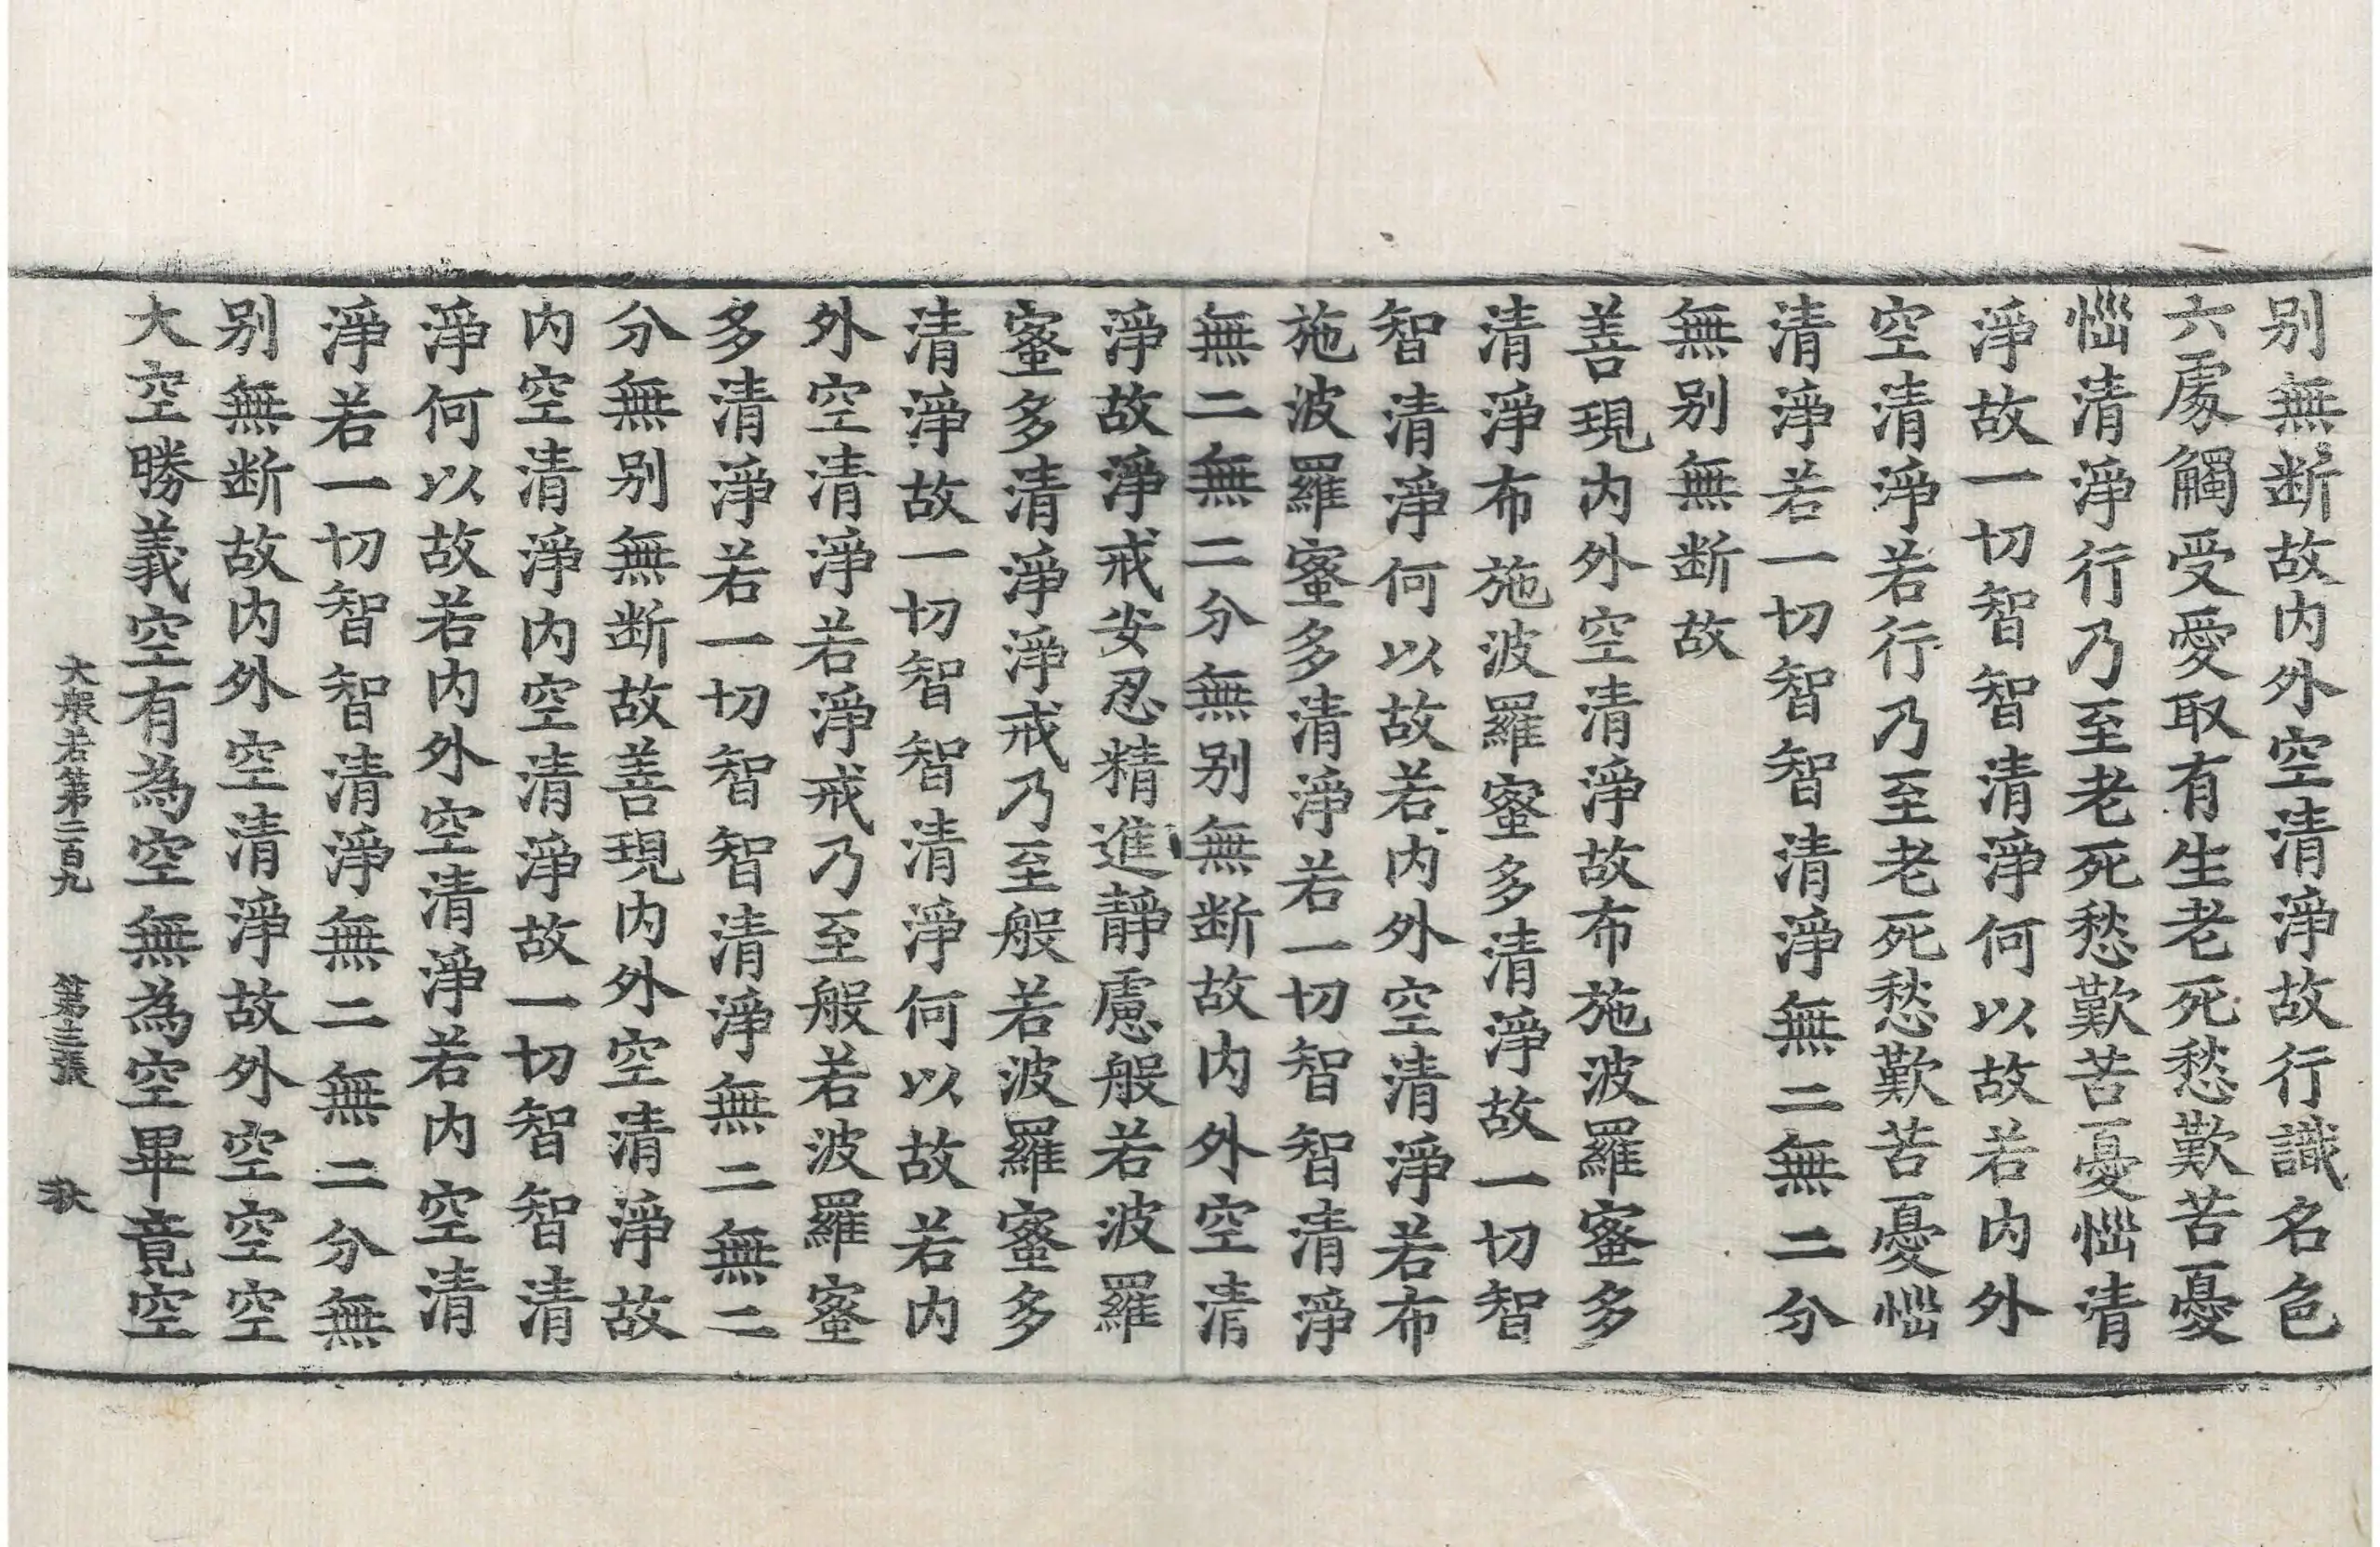 别無断故内外空清淨故行識名色
六處觸受愛取有生老死愁歎苦憂
惱清淨行乃至老死愁歎苦憂惱清
淨故一切智智清淨何以故若内外
空清淨若行乃至老死愁歎苦憂惱
清淨若一切智智清淨無二無二分
無别無断故
善現内外空清淨故布施波羅蜜多
清淨布施波羅蜜多清淨故一切智
智清淨何以故若内外空清淨若布
施波羅蜜多清淨若一切智智清淨
無二無二分無别無断故内外空清
淨故淨戒安忍精進靜慮般若波羅
蜜多清淨淨戒乃至般若波羅蜜多
清淨故一切智智清淨何以故若内
外空清淨若淨戒乃至般若波羅蜜
多清淨若一切智智清淨無二無二
分無别無断故善現内外空清淨故
内空清淨内空清淨故一切智智清
淨何以故若内外空清淨若内空清
淨若一切智智清淨無二無二分無
别無断故内外空清淨故外空空空
大空勝義空有為空無為空畢竟空
大般若第二百九 第三張 秋